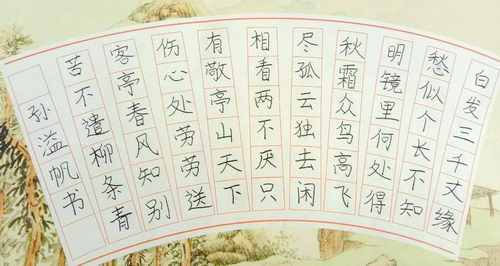 白发三千丈缘
愁似个长不知
明镜里何处得
秋霜众鸟高飞
尽孤云独去闲
相看两不厌只
有敬亭山天下
伤心处劳劳送
客亭春风知别
苦不遣柳条青
孙溢帆书